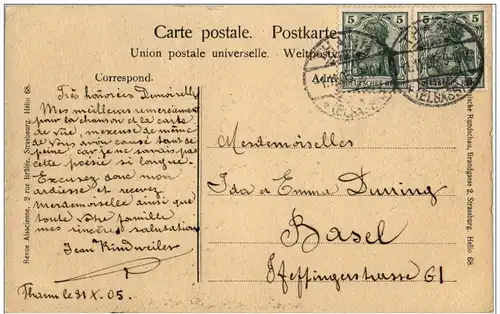 Carte postale. Postkarte
Union postale universelle. Weltpostv
Correspond.
Adre
5 5
5 5
DEUTSCHES REICH
THANN
(ELSASS)
Très honorées Demoiselle
Mes meilleurs remerciement
pour la chanson et la carte
de vue, mexcuse de même
de vous avoir causé tant de
peine car je ne savais pas
cette poésie si longue.
Excusez donc mon
ardiesse et recevez
Merdemoiselle ainsi que
toute votre famille
mes sincères salutation
Jean Kindweiler
Thann le 31 X. 05.
Mesdemoiselles
Ida et Emma Durring
Basel
Pfeffingerstrasse 61
Revue Alsacienne, 2 rue Brûlée, Strasbourg. Hélio 68.
ische Rundschau, Brandgasse 2, Strassburg. Hélio 68.